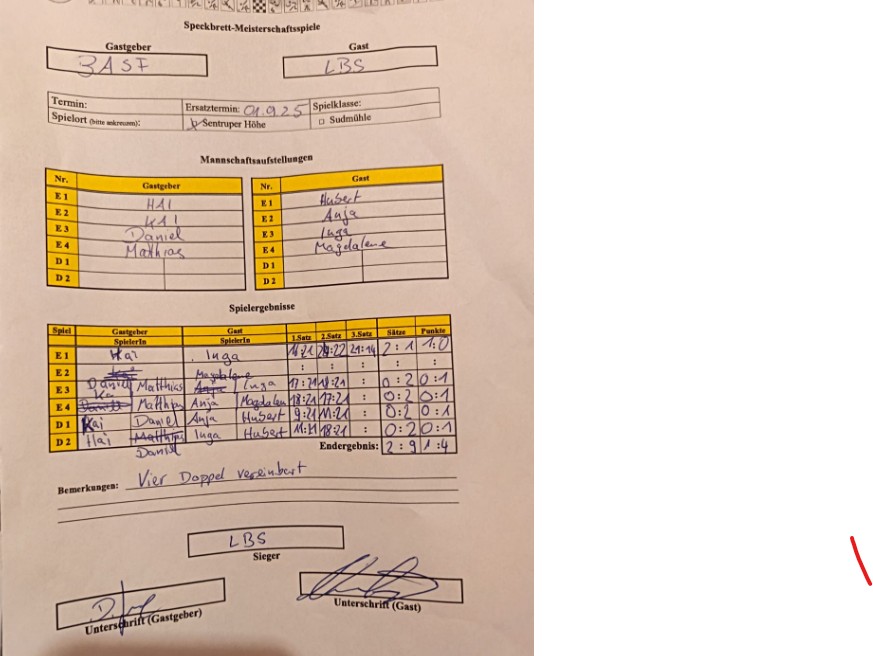 Speckbrett-Meisterschaftsspiele
Gastgeber Gast
BASF LBS
Termin: Ersatztermin: 01.9.25 Spielklasse:
Spielort (bitte ankreuzen): Sentruper Höhe Sudmühle
Mannschaftsaufstellungen
Nr. Gastgeber Nr. Gast
E 1 HAI E 1 Hubert
E 2 KAI E 2 Anja
E 3 Daniel E 3 Inga
E 4 Matthias E 4 Magdalene
D 1 D 1
D 2 D 2
Spielergebnisse
Spiel Gastgeber Gast 1.Satz 2.Satz 3.Satz Sätze Punkte
SpielerIn SpielerIn
E 1 Kai Inga 21:14 2:1 1:0
E 2 : : : : :
Magdalene
E 3 Daniel Matthias Inga 17:21 : 0:2 0:1
E 4 Kai Matthias Anja Magdalene 18:21 17:21 : 0:2 0:1
D 1 Kai Daniel Anja Hubert 9:21 11:21 : 0:2 0:1
D 2 Hai Matthias Inga Hubert 11:21 18:21 : 0:2 0:1
Daniel
Endergebnis: 2:9 1:4
Bemerkungen: Vier Doppel vereinbart
LBS
Sieger
Unterschrift (Gastgeber) Unterschrift (Gast)